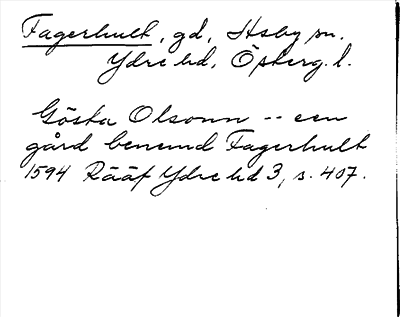 Fagerhult, gd, Asby sn.
Ydre hd, Österg. l.
Gösta Olsonn -- een
gård benemd Fagerhult
1594 Rääf Ydre hd 3, s. 407.